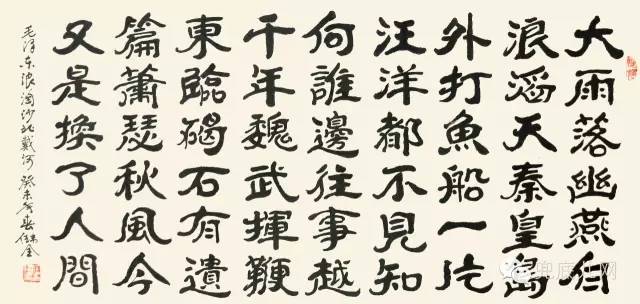 大雨落幽燕白
浪滔天秦皇島
外打魚船一片
汪洋都不見知
向誰邊往事越
千年魏武揮鞭
東臨碣石有遺
篇蕭瑟秋風今
又是換了人間
毛泽东浪淘沙北戴河 癸未年春